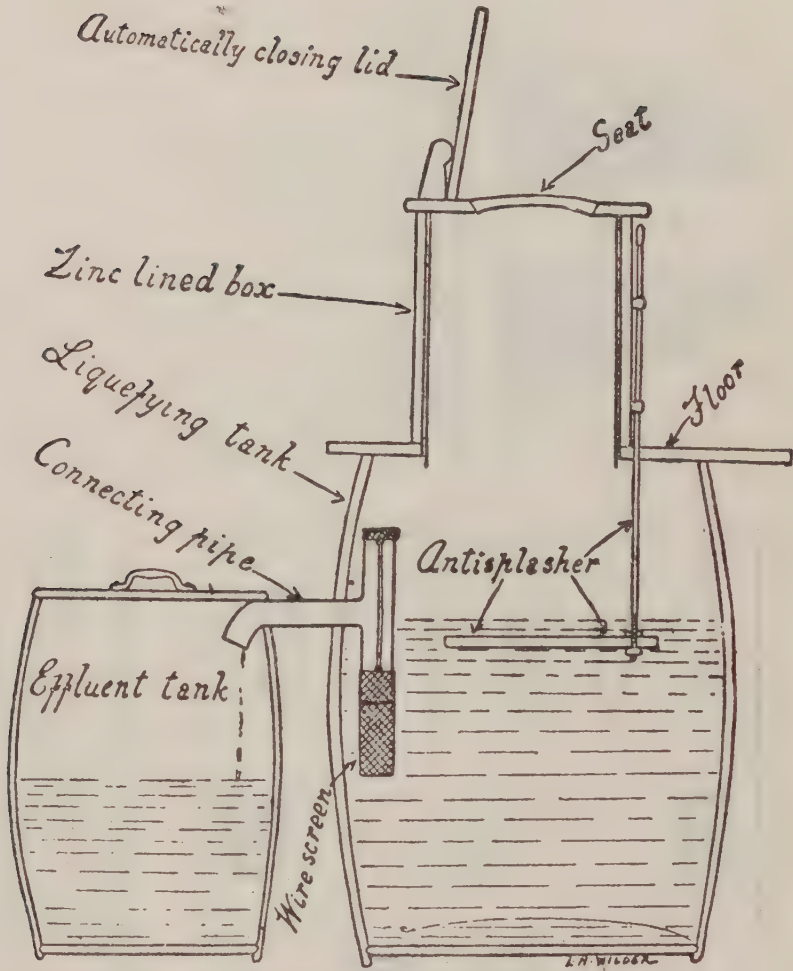 Automatically closing lid
Seat
Zinc lined box
Liquefying tank
Floor
Connecting pipe
Antisplasher
Effluent tank
Wire screen
L.H. WILDER